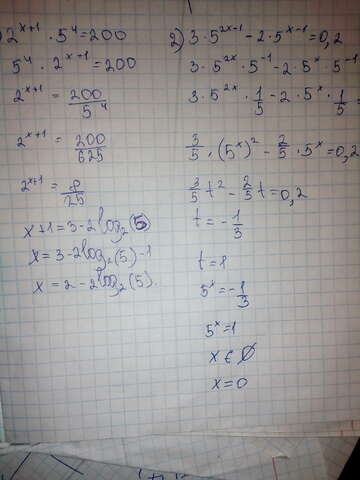 2^{x+1} · 5^4 = 200
5^4 · 2^{x+1} = 200
2^{x+1} = \frac{200}{5^4}
2^{x+1} = \frac{200}{625}
2^{x+1} = \frac{8}{25}
x+1 = 3-2log_2(5)
x = 3-2log_2(5)-1
x = 2-2log_2(5).
2) 3·5^{2x-1} - 2·5^{x-1} = 0,2
3·5^{2x}·5^{-1} - 2·5^x·5^{-1}
3·5^{2x}·\frac{1}{5} - 2·5^x·\frac{1}{5} =
\frac{3}{5}·(5^x)^2 - \frac{2}{5}·5^x = 0,2
\frac{3}{5}t^2 - \frac{2}{5}t = 0,2
t = -\frac{1}{3}
t = 1
5^x = -\frac{1}{3}
5^x = 1
x ∈ ∅
x = 0